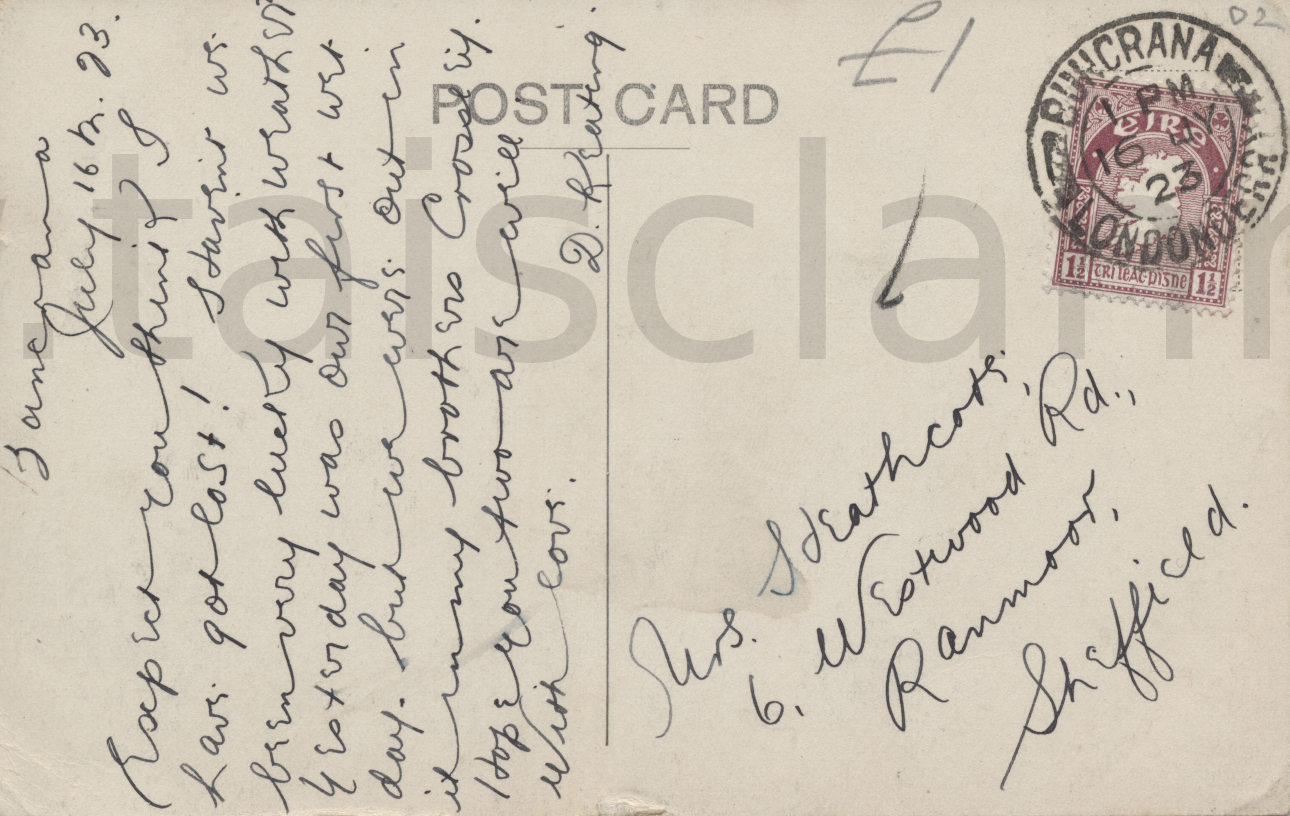 POST CARD
£1
02
July 16th. 23.
Expect you think I
have got lost! Haveint we
been very lucky with weather
yesterday was our first wet
day. but we were out in
it in my brothers Crossley.
Hope you two are well
With love.
D. Keating.
Mrs. Heathcote,
6. Westwood Rd.,
Ranmoor,
Sheffield.
BUNCRANA
1 PM
16 JY
23
LONDOND
éIRe
1½ 1½
.taisclann